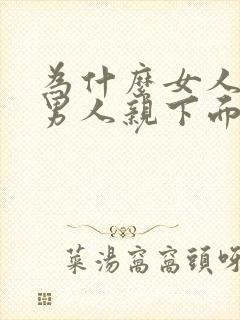 為什麼女人
男人親下面
菜湯窩窩頭呀